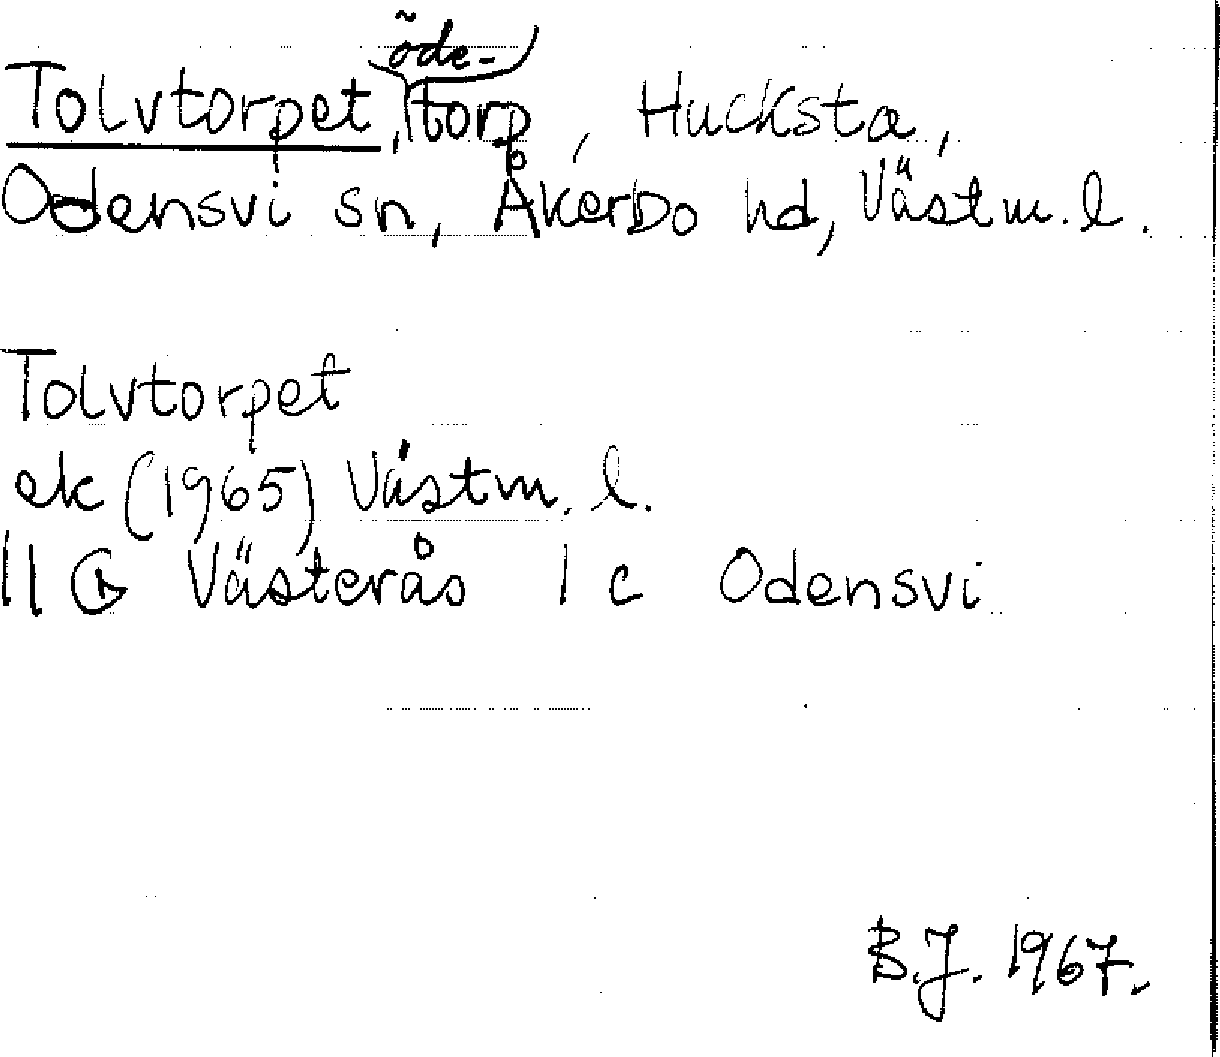 Tolvtorpet, ödetorp, Hucksta,
Odensvi sn, Åkerbo hd, Västm. l.
Tolvtorpet
ek (1965) Västm. l.
11 G Västerås 1 c Odensvi
B.J. 1967.